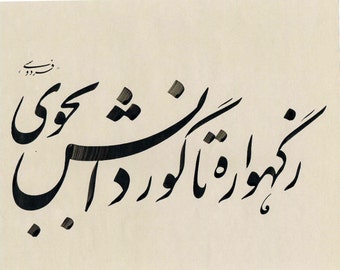 فردوسی
ز گهواره تا گور دانش بجوی